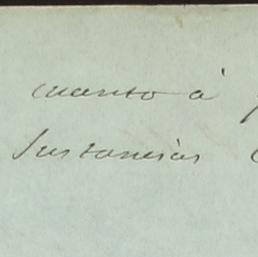 cuanto á
sustancias